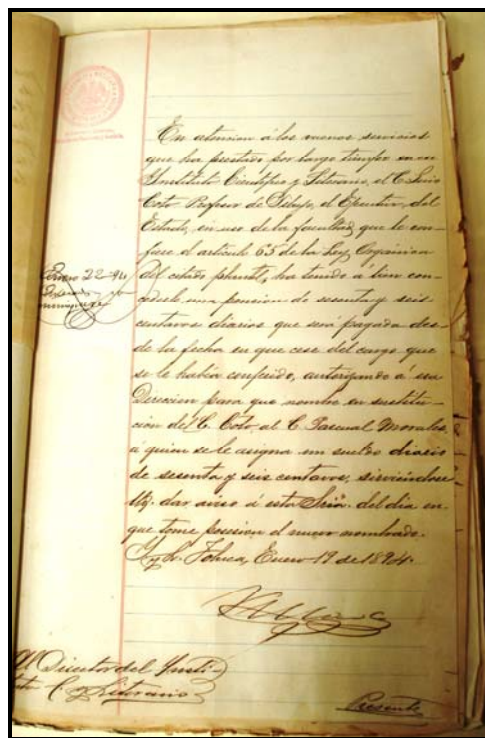 En atencion á los buenos servicios
que ha prestado por largo tiempo en ese
Instituto Científico y Literario, el C. Luis
Coto Profesor de Dibujo, el Ejecutivo del
Estado, en uso de la facultad que le con-
fiere el artículo 65 de la Ley Orgánica
del citado plantel, ha tenido á bien con-
cederle una pension de sesenta y seis
centavos diarios que será pagada des-
de la fecha en que cese del cargo que
se le había conferido, autorizando á esa
Direccion para que nombre en sustitu-
ción del C. Coto al C. Pascual Morales,
á quien se le asigna un sueldo diario
de sesenta y seis centavos, sirviéndose
Ud. dar aviso á esta Sría. del dia en
que tome posesion el nuevo nombrado.
L. y C. Toluca, Enero 19 de 1894.
Enero 22-94
Al Director del Insti-
tuto C. y Literario
Presente